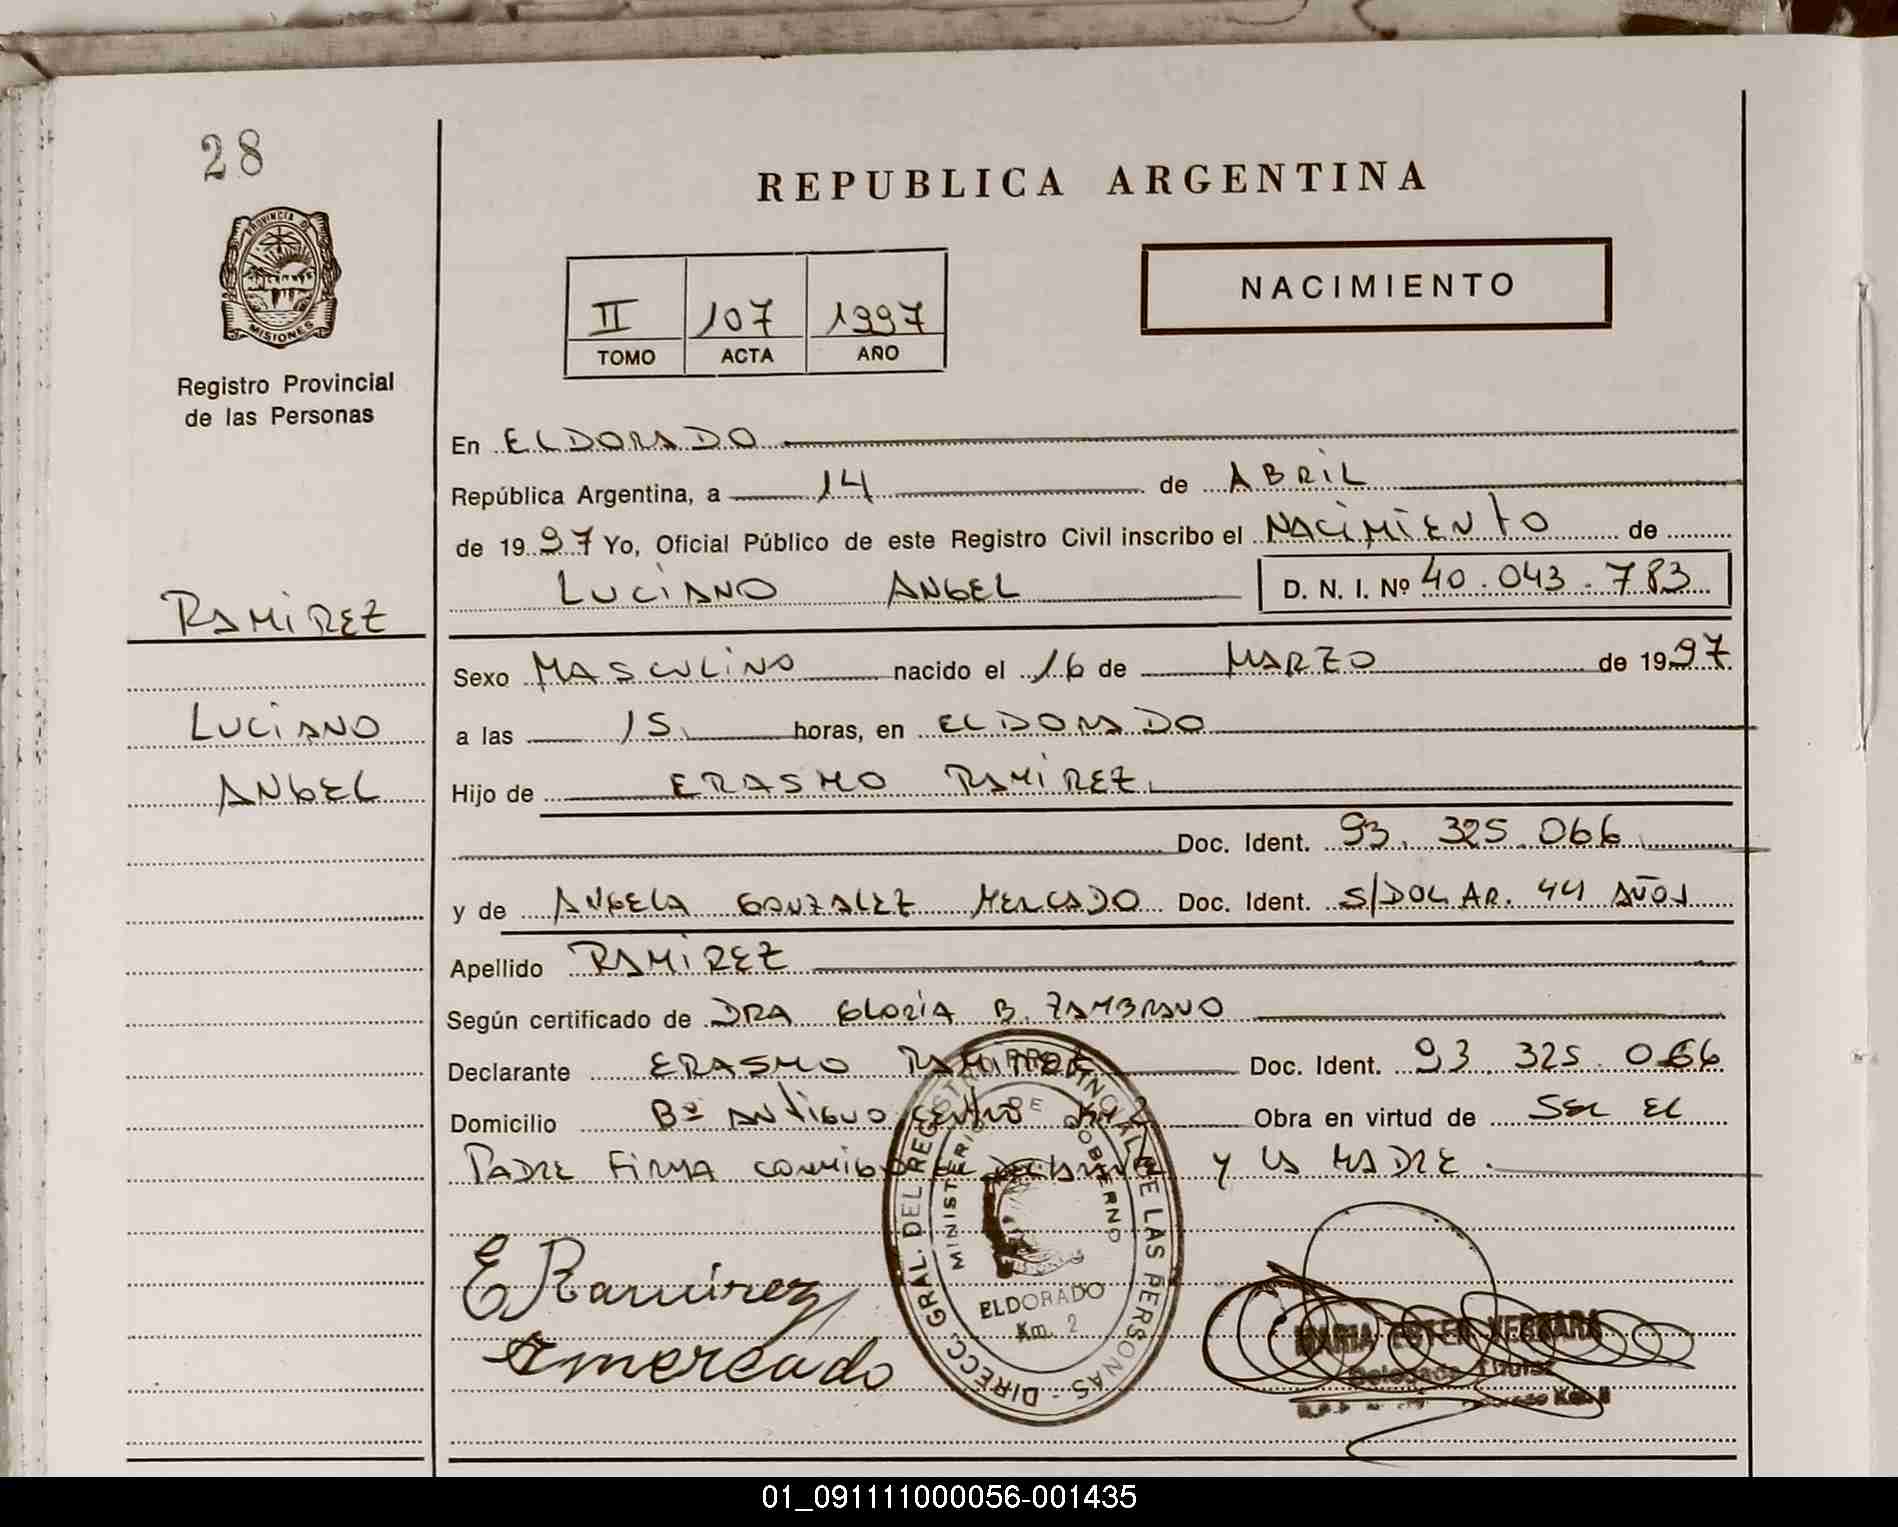 28
PROVINCIA DE
MISIONES
Registro Provincial
de las Personas
RAMIREZ
LUCIANO
ANGEL
REPUBLICA ARGENTINA
II 107 1997
TOMO ACTA AÑO
NACIMIENTO
En ELDORADO
República Argentina, a 14 de ABRIL
de 1997 Yo, Oficial Público de este Registro Civil inscribo el NACIMIENTO de
LUCIANO ANGEL D. N. I. Nº 40.043.783
Sexo MASCULINO nacido el 16 de MARZO de 1997
a las 15 horas, en ELDORADO
Hijo de ERASMO RAMIREZ
Doc. Ident. 93.325.066
y de ANGELA GONZALEZ MERCADO Doc. Ident. S/DOC AR. 44 AÑOS
Apellido RAMIREZ
Según certificado de DRA GLORIA B. ZAMBRANO
Declarante ERASMO RAMIREZ Doc. Ident. 93.325.066
Domicilio Bº ANTIGUO CENTRO KM 2 Obra en virtud de SER EL
PADRE FIRMA CONMIGO EL DECLARANTE Y LA MADRE.
E Ramírez
A mercado
DIRECC. GRAL. DEL REGISTRO PROVINCIAL DE LAS PERSONAS -
MINISTERIO DE GOBIERNO
ELDORADO
Km. 2
MARIA ESTER VERGARA
Delegada Titular
01_091111000056-001435